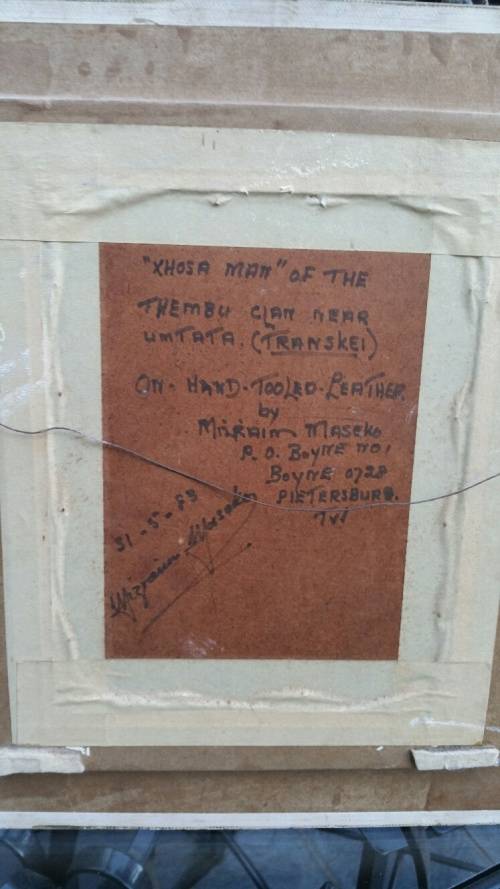 "XHOSA MAN" OF THE
THEMBU CLAN NEAR
UMTATA. (TRANSKEI)
ON-HAND-TOOLED-LEATHER.
by
MIZRAIM MASEKO
P.O. BOYNE NO1
BOYNE 0728
PIETERSBURG.
TVL
31-5-83
Mizraim Maseko